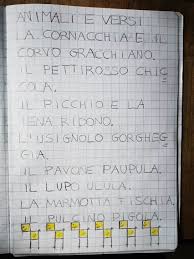 ANIMALI E VERSI
LA CORNACCHIA E IL
CORVO GRACCHIANO.
IL PETTIROSSO CHIC
COLA.
IL PICCHIO E LA
IENA RIDONO.
L'USIGNOLO GORGHEG
GIA.
IL PAVONE PAUPULA.
IL LUPO ULULA.
LA MARMOTTA FISCHIA.
IL PULCINO PIGOLA.